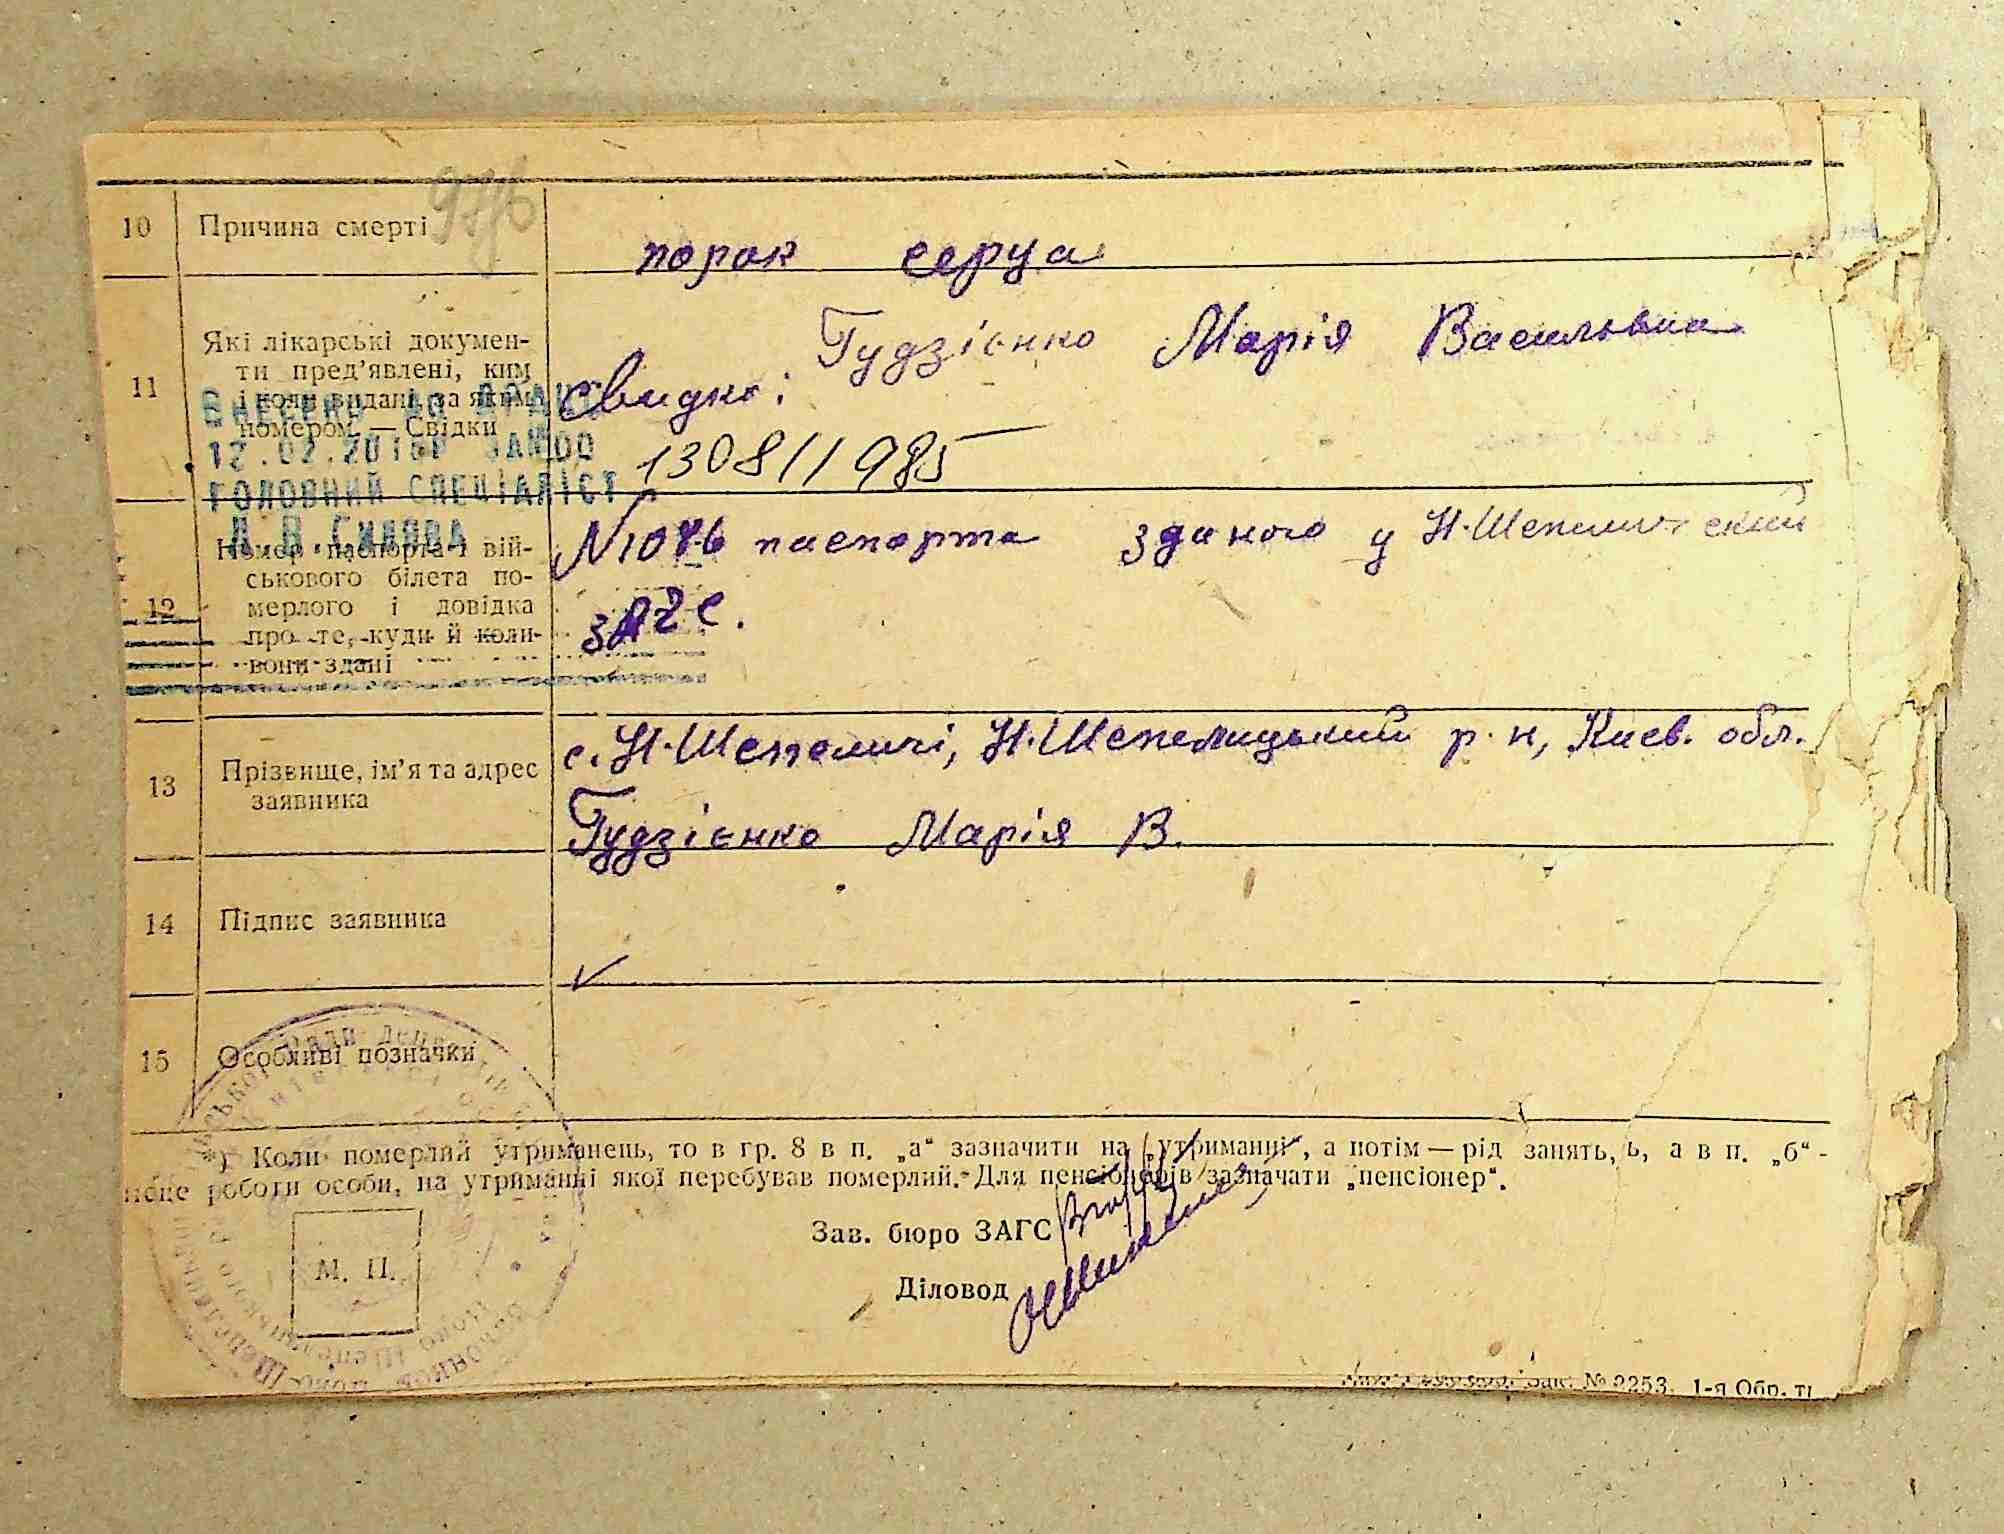 10 Причина смерті
порок серца
11 Які лікарські докумен-
ти пред'явлені, ким
і коли видані, за яким
номером. — Свідки
Гудзієнко Марія Васильвна
свидки:
ВНЕСЕНО ДО ДРАЦС
12.02.201
ГОЛОВНИЙ СПЕЦІАЛІСТ
12 Номер паспорта і вій-
ськового білета по-
мерлого і довідка
про те, куди й коли
вони здані
паспорта зданого у Н-Шепелический
ЗАГС.
13 Прізвище, ім'я та адрес
заявника
с. Н-Шепеличі, Н-Шепелицький р-н, Киев. обл.
Гудзієнко Марія В.
14 Підпис заявника
15 Особливі позначки
*) Коли померлий утриманець, то в гр. 8 в п. „а“ зазначити на „утриманні“, а потім — рід занять, ь, а в п. „б“ -
місце роботи особи, на утриманні якої перебував померлий. Для пенсіонерів зазначати „пенсіонер“.
Зав. бюро ЗАГС
Діловод
М. П.
№ 2253. 1-я Обр. ти